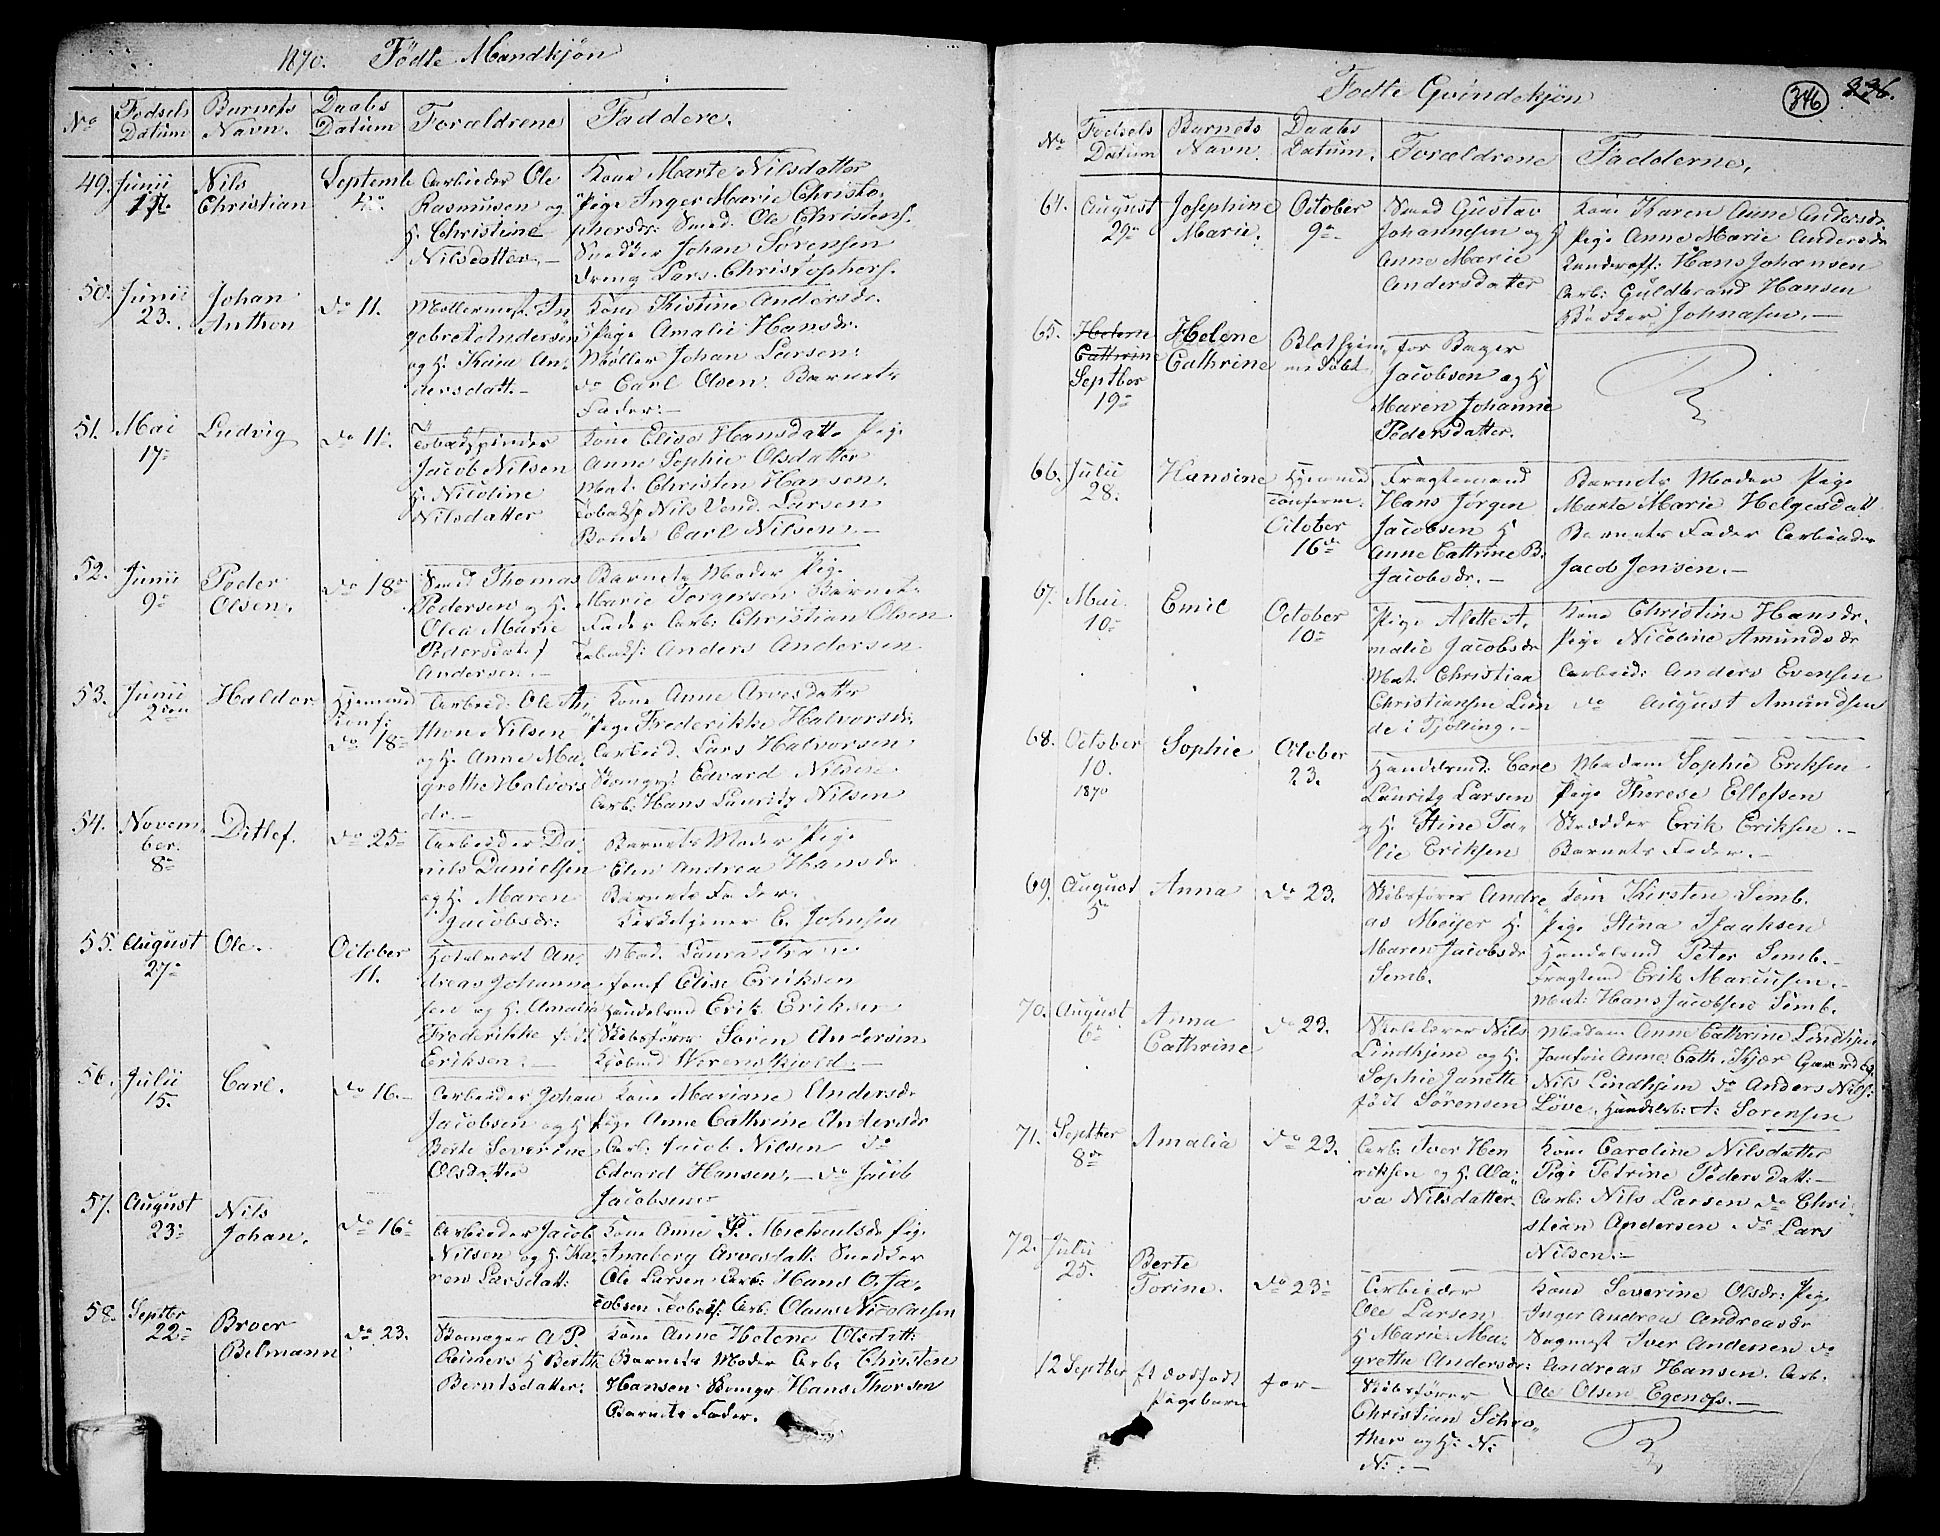 1870. Födte Mandkjön
No
Födsels Datum
Barnets Navn.
Daabs Datum
Forældrene
Faddere.
49. Junii 17.
Nils Christian
Septemb 4de
Arbeider Ole
Rasmusen og
H. Christine
Nilsdatter.
Kone Marte Nilsdatter
Pige Inger Marie Christo
phersdr: Smed. Ole Christens.
Snedker Johan Sörensen
Dreng Lars Christophers.
50. Junii 23.
Johan Anthon
do 11.
Möllermest. In
gebret Andersen
og H. Kaia An
dersdatt.
Kone Kistine Andersdr.
Pige Amalie Hansdr.
Möller Johan Larsen.
do Carl Olsen. Barnets
Fader.
51. Mai 17.
Ludvig
do 11.
Tobakspinder
Jacob Nilsen
H. Nicoline
Nilsdatter
Kone Elise Hansdatter Pige
Anne Sophie Olsdatter
Mat. Christen Hansen.
Tobaksp Nils Vend. Larsen
Bonde Carl Nilsen.
52. Junii 9.
Peder Olsen.
do 18de
Smed Thomas
Pedersen og H.
Olea Marie
Pedersdatt f
Andersen.
Barnets Moder Pige
Marie Torgersen Barnets
Fader Arb. Christian Olsen
Tobaksf. Anders Andersen
53. Junii 2den
Haldor
Hjemmed Conf: do 18de
Arbeid. Ole An
thon Nilsen
og H. Anne Ma
grethe Halvors
dr.
Kone Anne Arvesdatter
Pige Frederikke Halvorsdr.
Arbeid. Lars Halvorsen
Skomag. Edvard Nilsen
Arb. Hans Lauritz Nilsen
54. November 8de
Ditlef.
do 25de
Arbeider Da
niels Danielsen
og H. Maren
Jacobsdr.
Barnets Moder Pige
Elen Andrea Hansdr
Barnets Fader.
Kirketjener C. Johnsen
55. August 27de
Ole.
October 11.
Hotelvert An
dreas Johanne
sen og H. Amalia
Frederikke födt
Eriksen.
Mad. Laura
Jomf Elise Eriksen
Handelsmd Erik Eriksen
Skibsförer Sören Andersen
Kjöbmd Werenskjold.
56. Julii 15.
Carl.
do 16.
Arbeider Johan
Jacobsen og H
Berte Severine
Olsdatter
Kone Mariane Andersdr
Pige Anne Cathrine Andersdr
Arb: Jacob Nilsen do
Edvard Hansen. do Jacob
Jacobsen
57. August 23de
Nils Johan.
do 16de
Arbeider Jacob
Nilsen og H. Ka
ren Larsdatt.
Kone Anne S. Michaelsdr Pige
Ingeborg Arvesdatt. Snedker
Ole Larsen Arb: Hans O. Ja
cobsen Tobaksf. Arb. Olaus Nicolaisen
58. Septbr 22de
Broer Belmann
do 23.
Skomager A P
Reimers H Berthe
Berntsdatter.
Kone Anne Helene Olsdatt
Barnets Moder Arb. Christen
Hansen Skomgr Hans Thorsen
Barnets Fader.
346
336.
Födte Qvindekjön
No
Födsels Datum
Barnets Navn.
Daabs Datum.
Forældrene
Fadderne.
64. August 29de
Josephine Marie.
October 9de
Smed Gustav
Johannesen og H
Anne Marie
Andersdatter
Kone Karen Anne Andersdr.
Pige Anne Marie Andersdr
Hans Johansen
Arb: Guldbrand Hansen
Bödker Johnasen.
65. Helene Cathrine Septber 19de
Helene Cathrine
en Döbt
for Bager
Jacobsen og H
Maren Johanne
Pedersdatter.
66. Julii 28.
Hansine
Hjemmed Conferm. October 16de
Fragtemand
Hans Jørgen
Jacobsen H
Anne Cathrine B.
Jacobsdr.
Barnets Moder Pige
Marte Marie Helgesdatt
Barnets Fader Arbeider
Jacob Jensen.
67. Mai. 10de
Emil
October 10de
Pige Alette A.
malie Jacobsdr
Mat. Christian
Christiansen Lun
de i Tjölling.
Kone Christine Hansdr.
Pige Nicoline Amundsdr
Arbeid: Anders Evensen
do August Amundsen
68. October 10. 1870
Sophie
October 23.
Handelsmd: Carl
Lauritz Larsen
og H. Stine Ta
lie Eriksen
Madam Sophie Eriksen
Pige Therese Ellefsen
Skrædder Erik Eriksen.
Barnets Fader.
69. August 5de
Anna
do 23.
Skibsförer Andre
as Meijer H.
Maren Jacobsdr
Semb.
Kone Kirsten Semb.
Pige Stina Isaaksen
Handelsmd Peter Semb.
Fragtemd Erik Marcusen.
Mat: Hans Jacobsen Semb.
70. August 6de
Anna Cathrine
do 23.
Nils
Lindhjem og H.
Sophie Janette
födt Sörensen
Madam Anne Cathrine Lindhjem
Jomfru Anne Cath. Kjær
Nils Lindhjem do Anders Nils:
Löve. Handelsb: A: Sörensen
71. Septber 8de
Amalia
do 23.
Arb. Iver Hen
riksen og H. Ola
va Nilsdatter
Kone Caroline Nilsdatter
Pige Petrine Pedersdatt:
Arb: Nils Larsen do Chri
stian Andersen do Lars
Nilsen.
72. Julii 25.
Berte Torine.
do 23de
Arbeider
Ole Larsen
H Marie Ma
grethe Andersdr:
Kone Severine Olsdr: Pige
Inger Andrea Andreasdr
Sagmest Iver Andersen do
Andreas Hansen. Arb.
Ole Olsen Egenæss.
12 Septber
et dödfödt Pigebarn
for
Skibsförer
Christian Schrö
ther og H: N:
N: